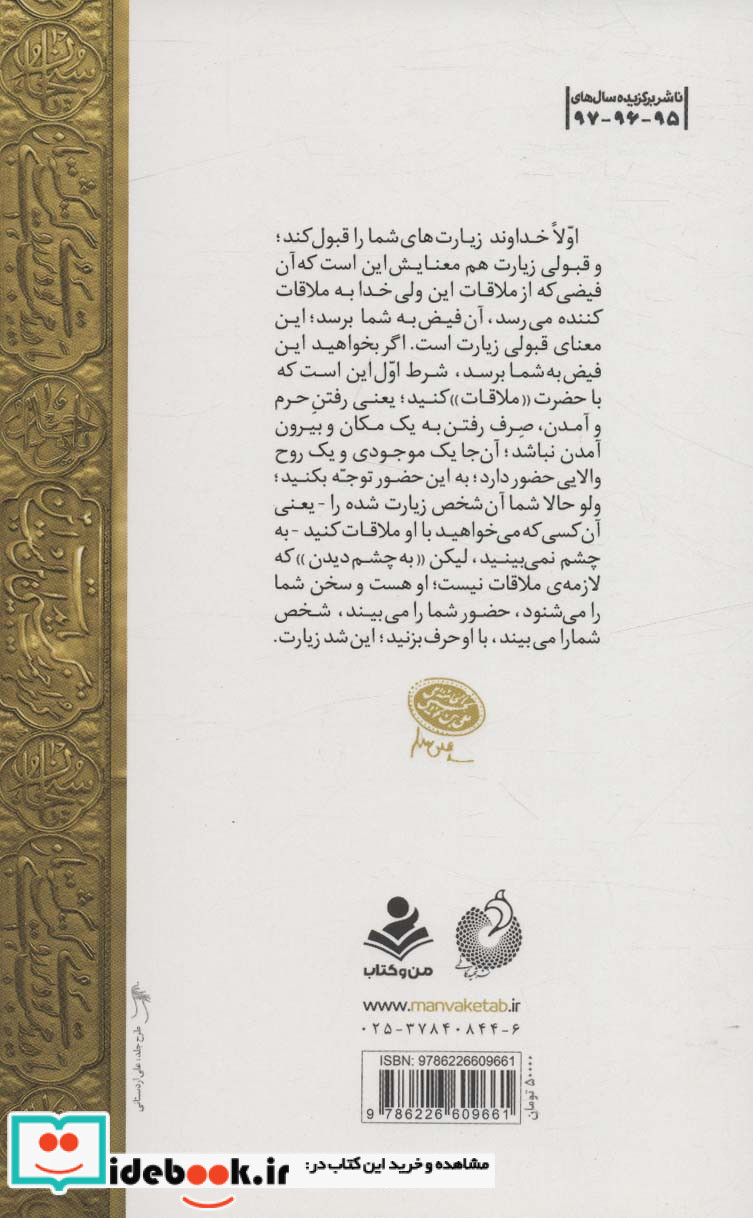 ناشر برگزیده سال‌های
۹۵-۹۶-۹۷
اوّلاً خداوند زیارت‌های شما را قبول کند؛
و قبولی زیارت هم معنایش این است که آن
فیضی که از ملاقات این ولی خدا به ملاقات
کننده می‌رسد، آن فیض به شما برسد؛ این
معنای قبولی زیارت است. اگر بخواهید این
فیض به شما برسد، شرط اوّل این است که
با حضرت «ملاقات» کنید؛ یعنی رفتنِ حرم
و آمدن، صِرف رفتن به یک مکان و بیرون
آمدن نباشد؛ آن‌جا یک موجودی و یک روح
والایی حضور دارد؛ به این حضور توجّه بکنید؛
ولو حالا شما آن شخص زیارت شده را - یعنی
آن کسی که می‌خواهید با او ملاقات کنید - به
چشم نمی‌بینید، لیکن «به چشم دیدن» که
لازمه‌ی ملاقات نیست؛ او هست و سخن شما
را می‌شنود، حضور شما را می‌بیند، شخص
شما را می‌بیند، با او حرف بزنید؛ این شد زیارت.
من و کتاب
www.manvaketab.ir
۰۲۵-۳۷۸۴۰۸۴۴-۶
ISBN: 9786226609661
9 786226 609661
۵۰۰۰۰ تومان
طرح جلد: علی اردستانی
مشاهده و خرید این کتاب در:
idebook.ir